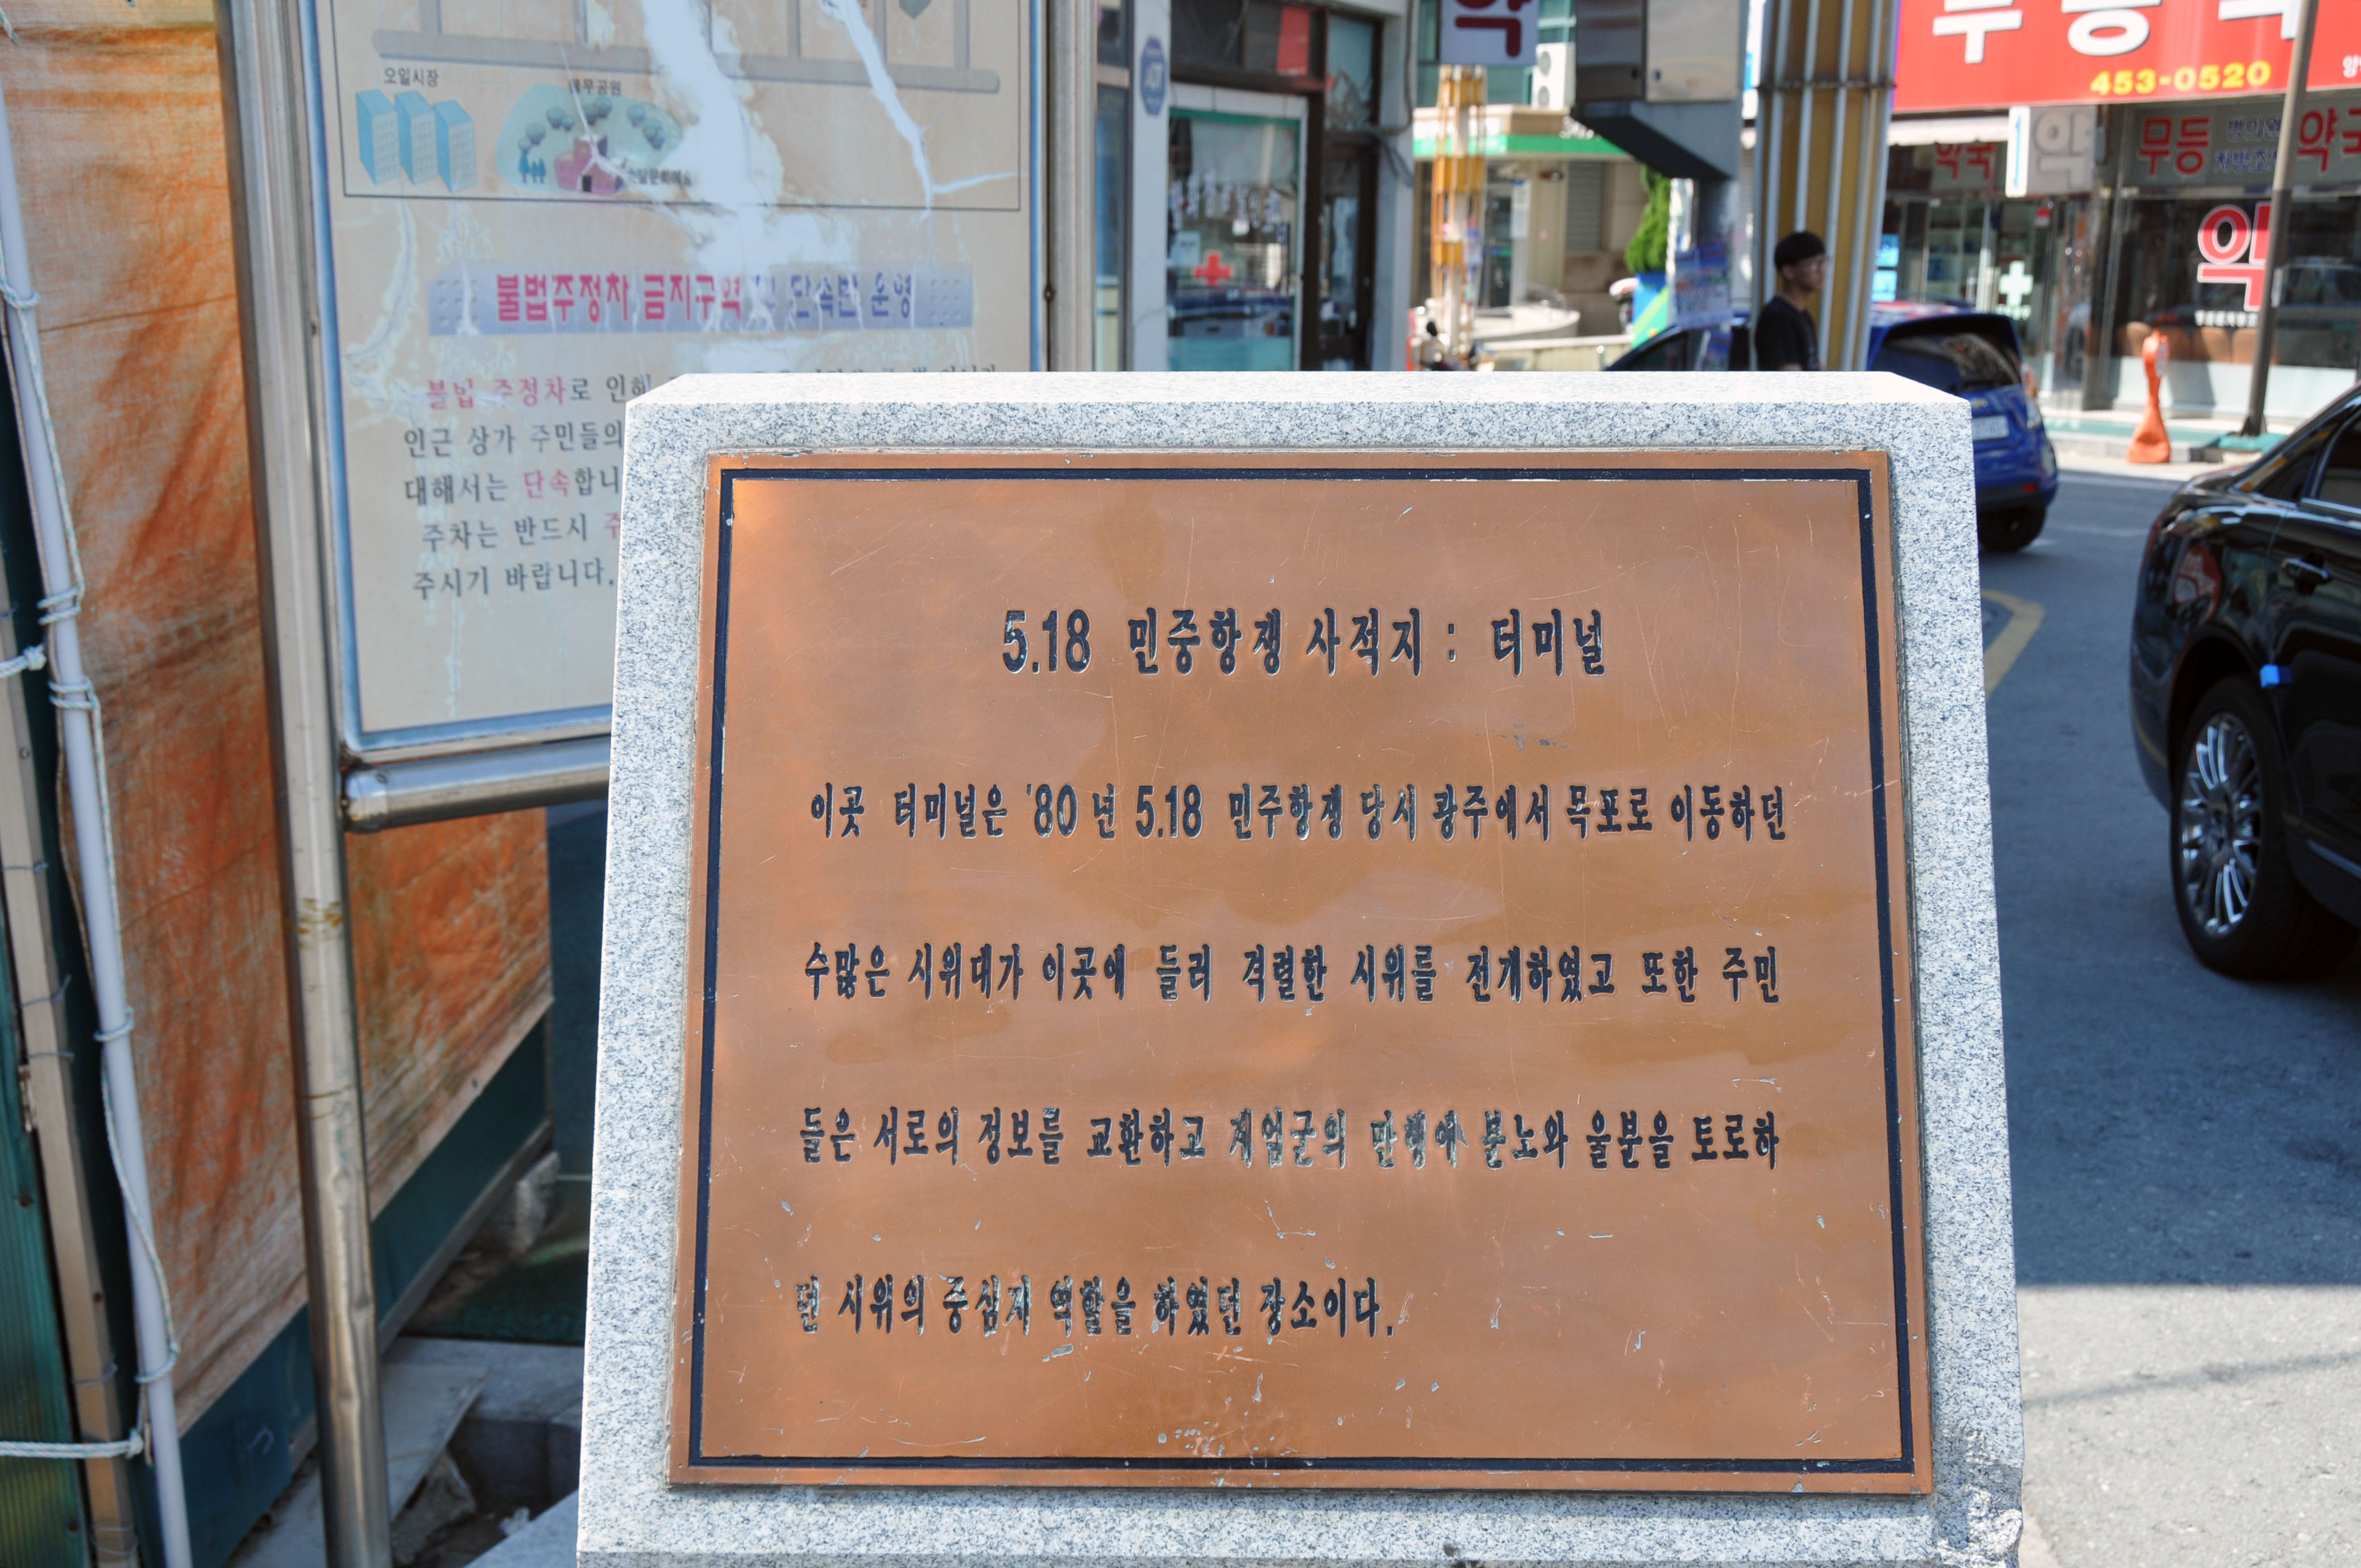 오일시장
불법주정차 금지구역
단속반 운영
불법 주정차로 인해
인근 상가 주민들의
대해서는 단속합니
주차는 반드시 주
주시기 바랍니다.
약
무등약
453-0520
약국
약
무등
약국
약
5.18 민중항쟁 사적지 : 터미널
이곳 터미널은 '80년 5.18 민주항쟁 당시 광주에서 목포로 이동하던
수많은 시위대가 이곳에 들러 격렬한 시위를 전개하였고 또한 주민
들은 서로의 정보를 교환하고 계엄군의 만행에 분노와 울분을 토로하
던 시위의 중심지 역할을 하였던 장소이다.